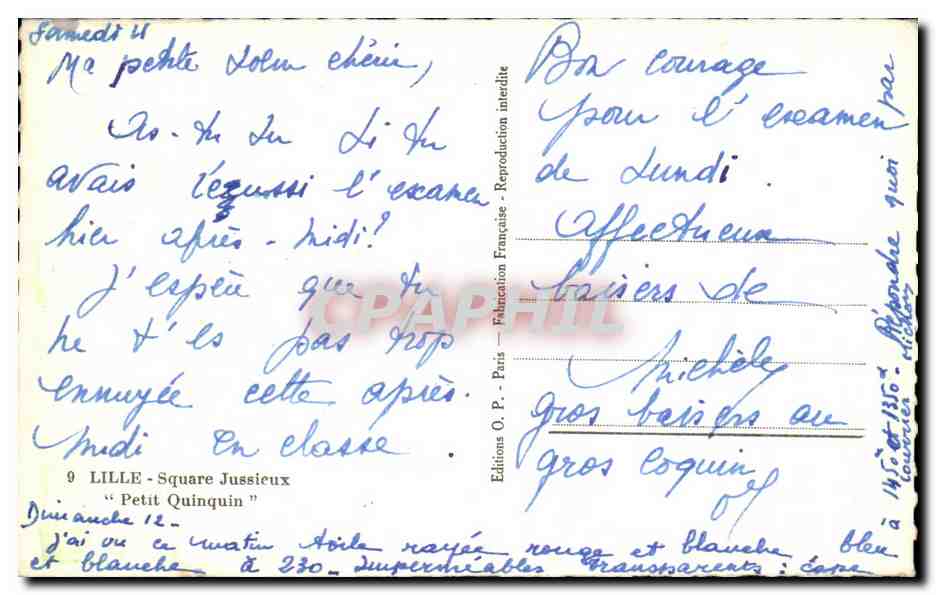 Samedi 11
Ma petite soeur chérie,
As-tu su si tu
avais réussi l'examen
hier après-midi?
J'espère que tu
ne t'es pas trop
ennuyée cette après-
midi en classe.
9 LILLE - Square Jussieux
" Petit Quinquin "
Editions O. P. - Paris — Fabrication Française - Reproduction interdite
Bon courage
pour l'examen
de Lundi.
Affectueux
baisers de
Michèle
gros baisers au
gros coquin
Dimanche 12 -
J'ai vu ce matin toile rayée rouge et blanche bleu
et blanche à 230 - Imperméables transparents : cape
à 1450 et 1350 - Répondre quoi par
courrier
CPAPHIL